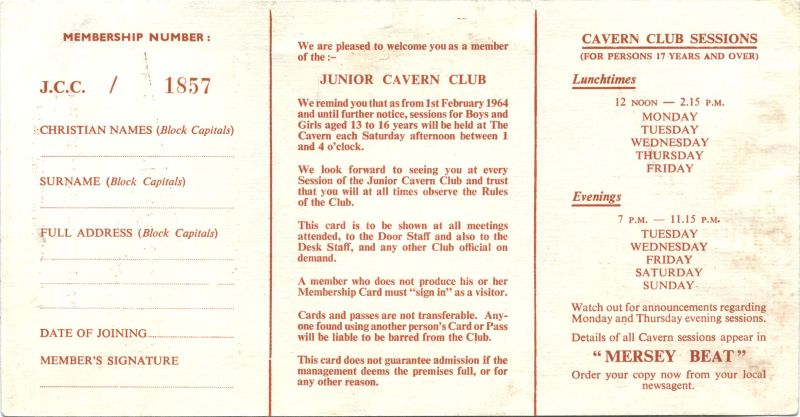 MEMBERSHIP NUMBER :
J.C.C. / 1857
CHRISTIAN NAMES (Block Capitals)
SURNAME (Block Capitals)
FULL ADDRESS (Block Capitals)
DATE OF JOINING
MEMBER'S SIGNATURE
We are pleased to welcome you as a member
of the :–
JUNIOR CAVERN CLUB
We remind you that as from 1st February 1964
and until further notice, sessions for Boys and
Girls aged 13 to 16 years will be held at The
Cavern each Saturday afternoon between 1
and 4 o'clock.
We look forward to seeing you at every
Session of the Junior Cavern Club and trust
that you will at all times observe the Rules
of the Club.
This card is to be shown at all meetings
attended, to the Door Staff and also to the
Desk Staff, and any other Club official on
demand.
A member who does not produce his or her
Membership Card must "sign in" as a visitor.
Cards and passes are not transferable. Any-
one found using another person's Card or Pass
will be liable to be barred from the Club.
This card does not guarantee admission if the
management deems the premises full, or for
any other reason.
CAVERN CLUB SESSIONS
(FOR PERSONS 17 YEARS AND OVER)
Lunchtimes
12 NOON — 2.15 P.M.
MONDAY
TUESDAY
WEDNESDAY
THURSDAY
FRIDAY
Evenings
7 P.M. — 11.15 P.M.
TUESDAY
WEDNESDAY
FRIDAY
SATURDAY
SUNDAY
Watch out for announcements regarding
Monday and Thursday evening sessions.
Details of all Cavern sessions appear in
"MERSEY BEAT"
Order your copy now from your local
newsagent.